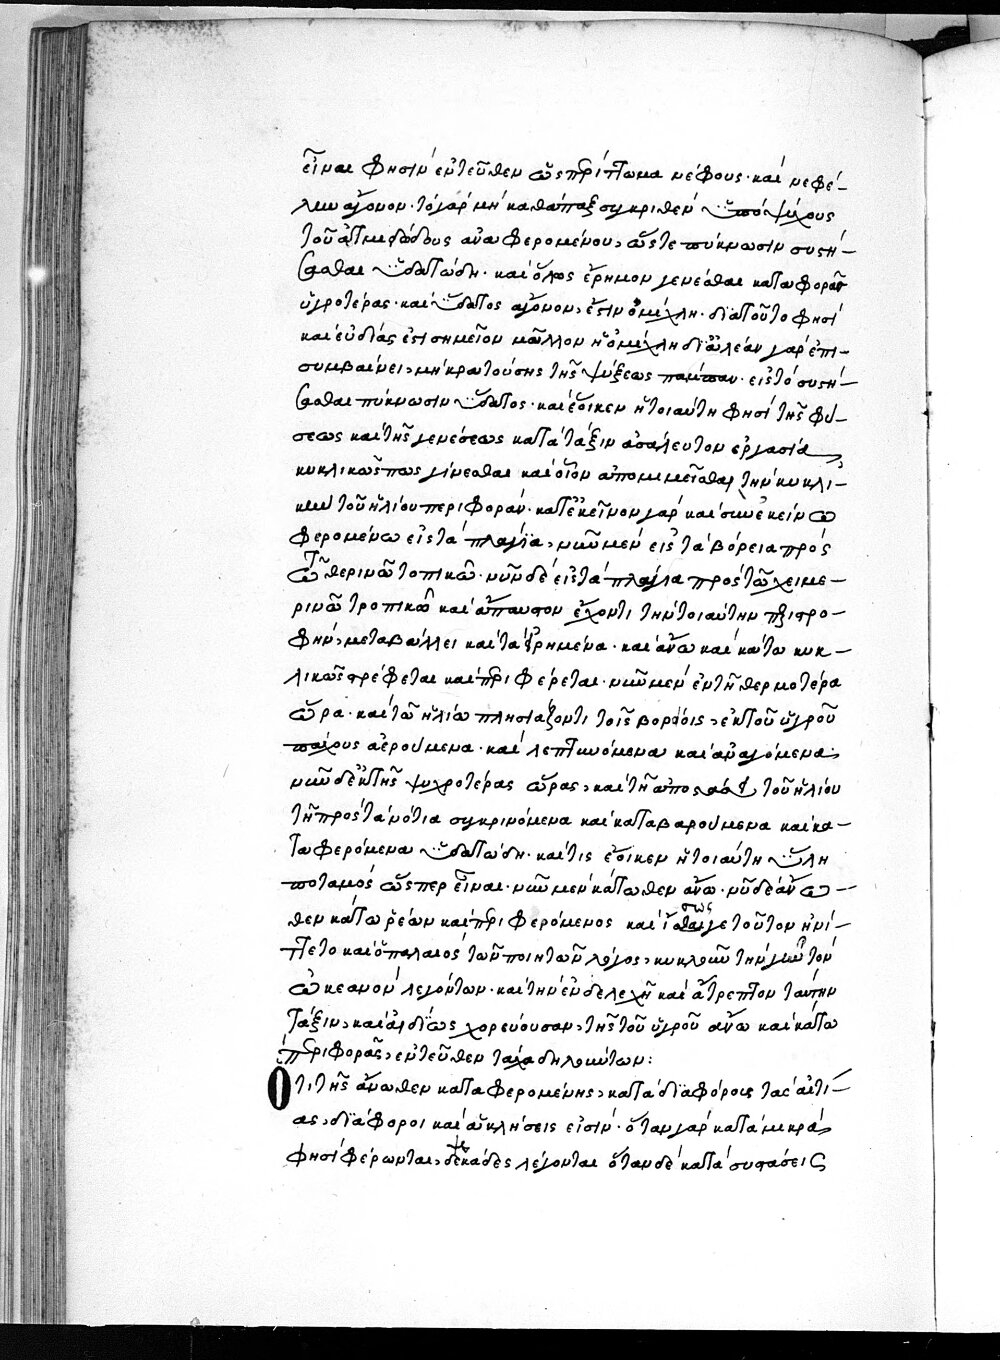 εἶναι φησὶν ἐντεῦθεν ὡς περίττωμα νέφους· καὶ νεφέ-
λην ἄγονον· τὸ γὰρ μὴ καθάπαξ συγκριθὲν ὑπὸ ψύχους
τοῦ ἀτμιδώδους ἄνω φερομένου, ὥστε πύκνωσιν συστή-
σασθαι ὑδατώδη· καὶ ὅλως ἔρημον γενέσθαι καταφορᾶς
ὑγροτέρας· καὶ ὕδατος ἄγονον, ἔστιν ὀμίχλη· διατοῦτο φησὶ
καὶ εὐδίας ἐστὶ σημεῖον μᾶλλον ἡ ὀμίχλη γὰρ ἐπι-
συμβαίνει, μὴ κρατούσης τῆς ψύξεως πάμπαν· εἰς τὸ συστή-
σασθαι πύκνωσιν ὕδατος· καὶ ἔοικεν ἡ τοιαύτη φησὶ τῆς φύ-
σεως καὶ τῆς γενέσεως κατὰ τάξιν ἀσάλευτον ἐργασία
κυκλικῶς πως γίνεσθαι καὶ οἷον ἀπομιμεῖσθαι τὴν κυκλι-
κὴν τοῦ ἡλίου περιφοράν· κατ' ἐκεῖνον γὰρ καὶ σὺν ἐκείνω
φερομένω εἰς τὰ πλάγια, νῦν μὲν εἰς τὰ βόρεια πρὸς
τῶ θερινῶ τροπικῶ· νῦν δὲ εἰς τὰ πλάγια πρὸς τῶ χειμε-
ρινῶ τροπικῶ καὶ ἄπαυστον ἔχοντι τὴν τοιαύτην περιστρο-
φὴν, μεταβάλλει καὶ τὰ εἰρημένα· καὶ ἄνω καὶ κάτω κυκ-
λικῶς στρέφεται καὶ περιφέρεται· νῦν μὲν ἐν τῆ θερμοτέρα
ὥρα· καὶ τῶ ἡλίω πλησιάζοντι τοῖς βορείοις, ἐκ τοῦ ὑγροῦ
πάχους ἀερούμενα· καὶ λεπτυνόμενα καὶ ἀναγόμενα·
νῦν δὲ ἐκ τῆς ψυχροτέρας ὥρας, καὶ τῆ ἀποστάσει τοῦ ἡλίου
τῆ πρὸς τὰ νότια συγκρινόμενα καὶ καταβαρούμενα καὶ κα-
ταφερόμενα ὑδατώδη· καὶ τις ἔοικεν ἡ τοιαύτη ὕλη
ποταμὸς ὥσπερ εἶναι· νῦν μὲν κάτωθεν ἄνω· νῦν δὲ ἄνω-
θεν κάτω ῥέων καὶ περιφερόμενος καὶ ἴσως γε τοῦτον ἠνί-
ττετο καὶ ὁ παλαιὸς τῶν ποιητῶν λόγος, κυκλοῦν τὴν γῆν τὸν
ὠκεανὸν λεγόντων· καὶ τὴν ἐνδελεχῆ καὶ ἄτρεπτον ταύτην
τάξιν, καὶ ἀϊδίως χορεύουσαν, τῆς τοῦ ὑγροῦ ἄνω καὶ κάτω
περιφορᾶς, ἐντεῦθεν τάχα δηλούντων:
Ὅτι τῆς ἄνωθεν καταφερομένης, κατὰ διαφόρους τὰς αἰτί-
ας, διάφοροι καὶ αἱ κλήσεις εἰσίν· ὅταν γὰρ κατὰ μικρὰ,
φησὶ φέρωνται, ψεκάδες λέγονται ὅταν δὲ κατὰ συστάσεις